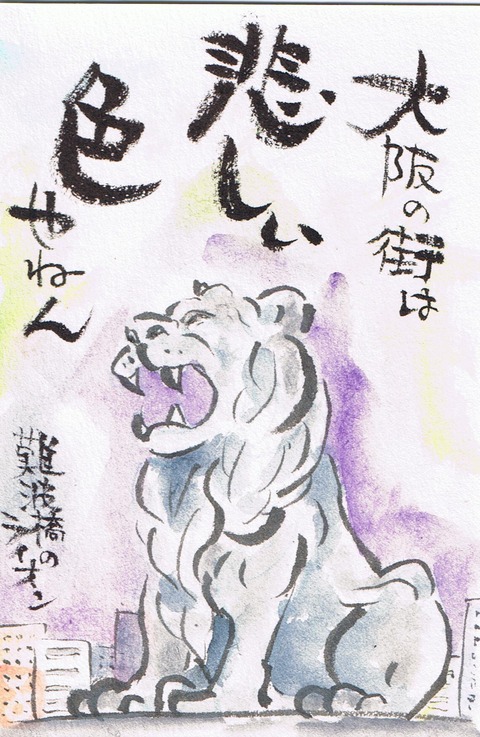 大阪の街は
悲しい
色
やねん
難波橋の
ライオン